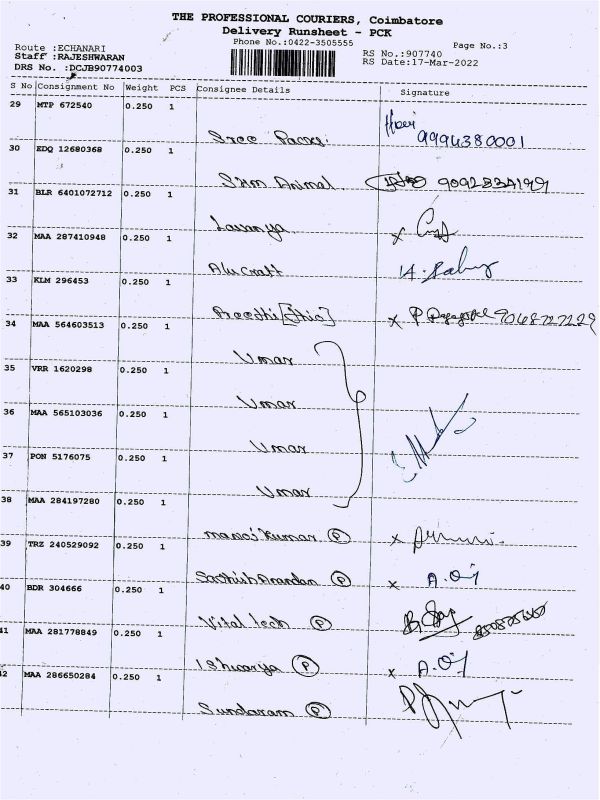 THE PROFESSIONAL COURIERS, Coimbatore
Delivery Runsheet - PCK
Phone No.:0422-3505555
Page No.:3
Route :ECHANARI
Staff :RAJESHWARAN
DRS No. :DCJB90774003
RS No.:907740
RS Date:17-Mar-2022
S No Consignment No Weight PCS Consignee Details Signature
29 MTP 672540 0.250 1
Sree 9994380001
30 EDQ 12680368 0.250 1
SKM Animal
31 BLR 6401072712 0.250 1
Lavanya x
32 MAA 287410948 0.250 1
Alucraft
33 KLM 296453 0.250 1
Preethi x P
34 MAA 564603513 0.250 1
Umar
35 VRR 1620298 0.250 1
Umar
36 MAA 565103036 0.250 1
Umar
37 PON 5176075 0.250 1
Umar
38 MAA 284197280 0.250 1
manoj kumar P x
39 TRZ 240529092 0.250 1
Sathish Anandan P x
40 BDR 304666 0.250 1
Vital Tech P
41 MAA 281778849 0.250 1
Ishwarya P x
42 MAA 286650284 0.250 1
Sundaram P